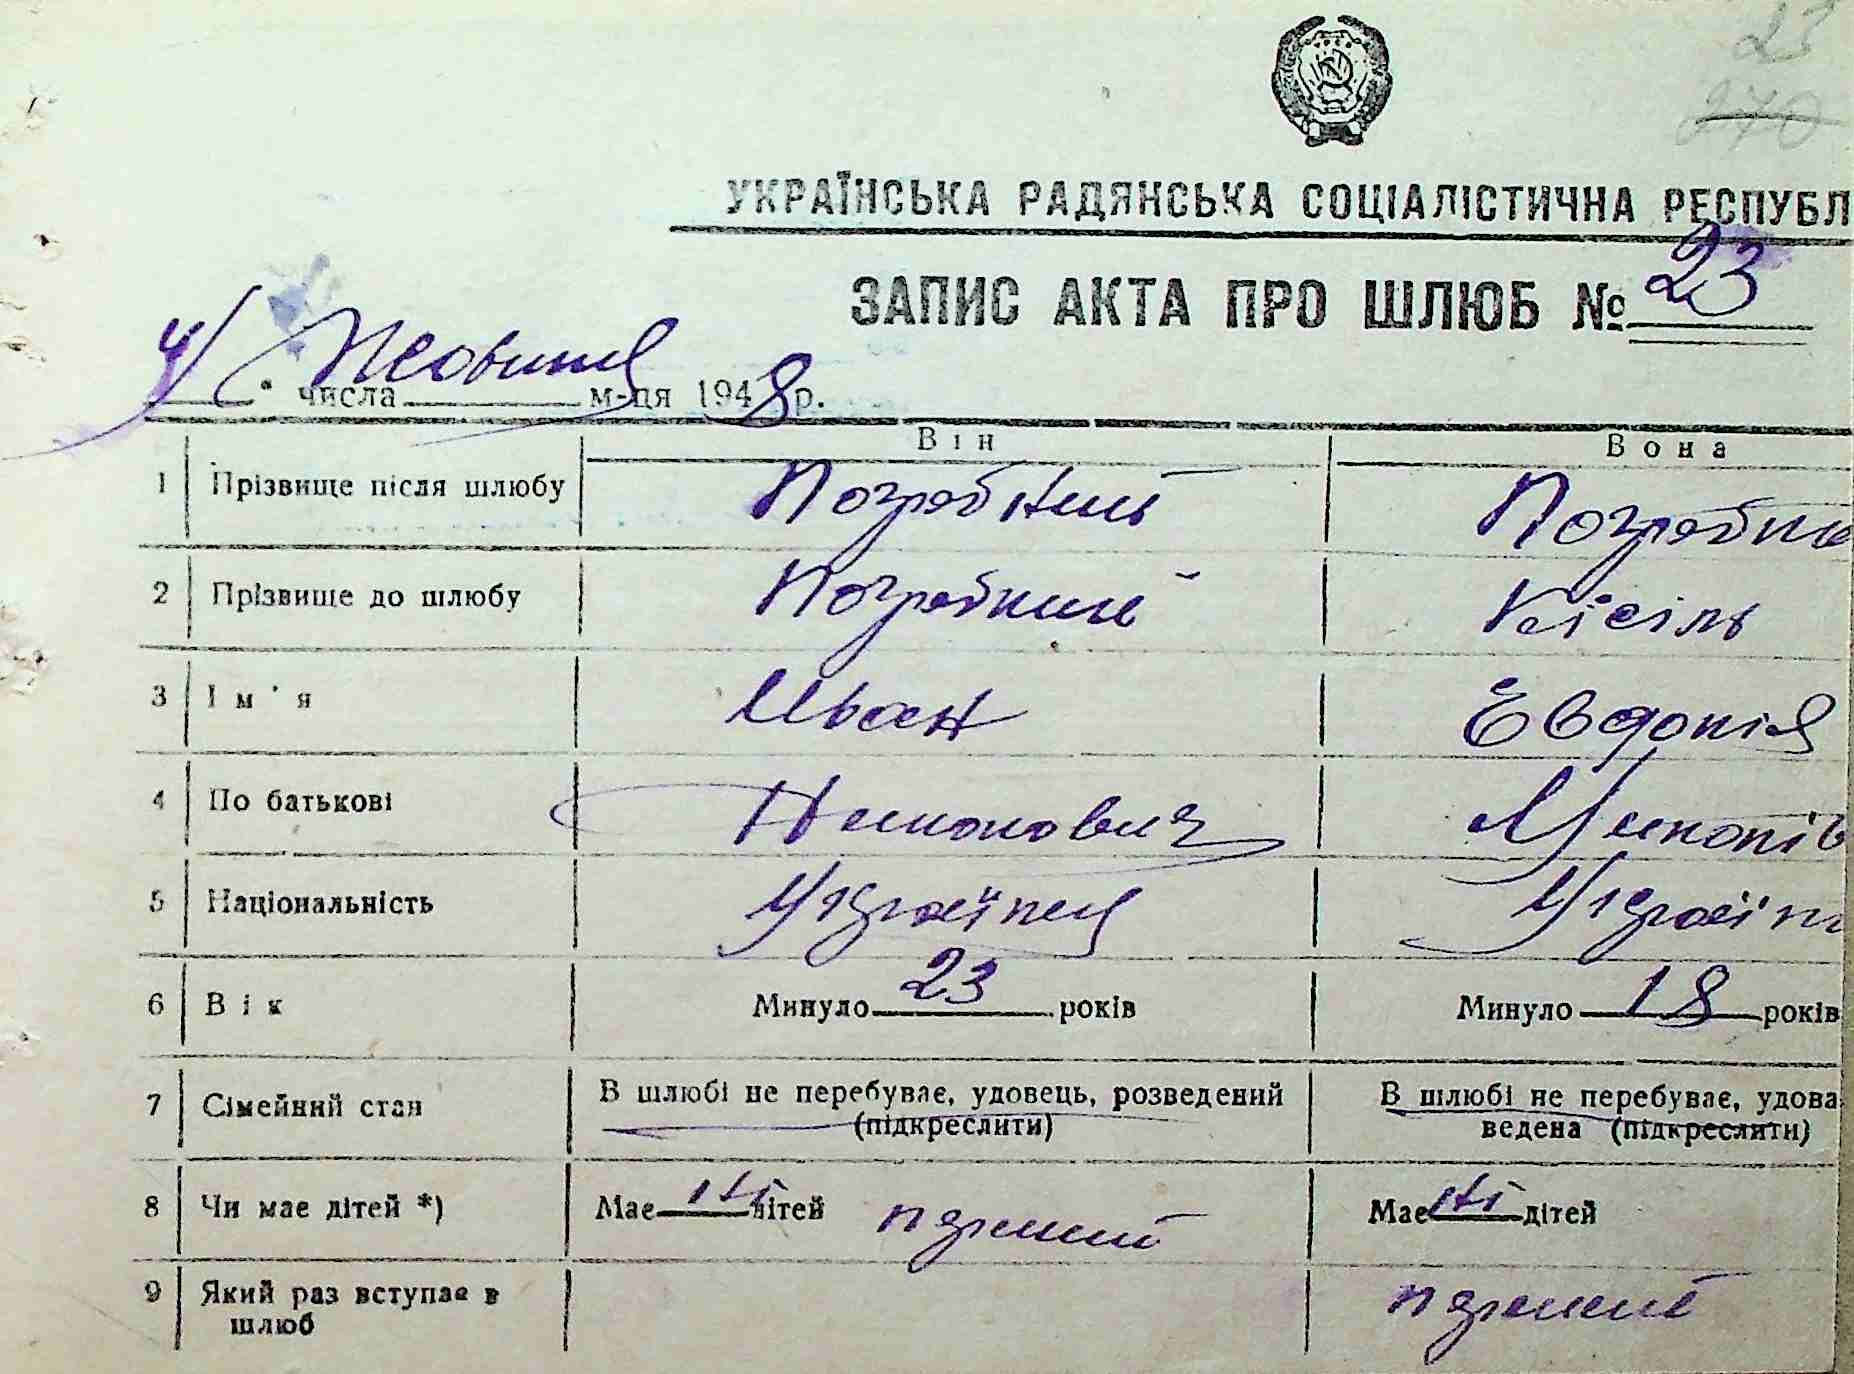 23
270
УКРАЇНСЬКА РАДЯНСЬКА СОЦІАЛІСТИЧНА РЕСПУБЛ
ЗАПИС АКТА ПРО ШЛЮБ № 23
4 " числа Жовтня м-ця 1948 р.
Він Вона
1 Прізвище після шлюбу Погребний Погребна
2 Прізвище до шлюбу Погребний Кісіль
3 Ім'я Иван Евдокія
4 По батькові
5 Національність Українец Україн
6 Вік Минуло 23 років Минуло 18 років
7 Сімейний стан В шлюбі не перебуває, удовець, розведений В шлюбі не перебуває, удова
(підкреслити) ведена (підкреслити)
8 Чи має дітей *) Має ні дітей первий Має ні дітей
9 Який раз вступає в первий
шлюб